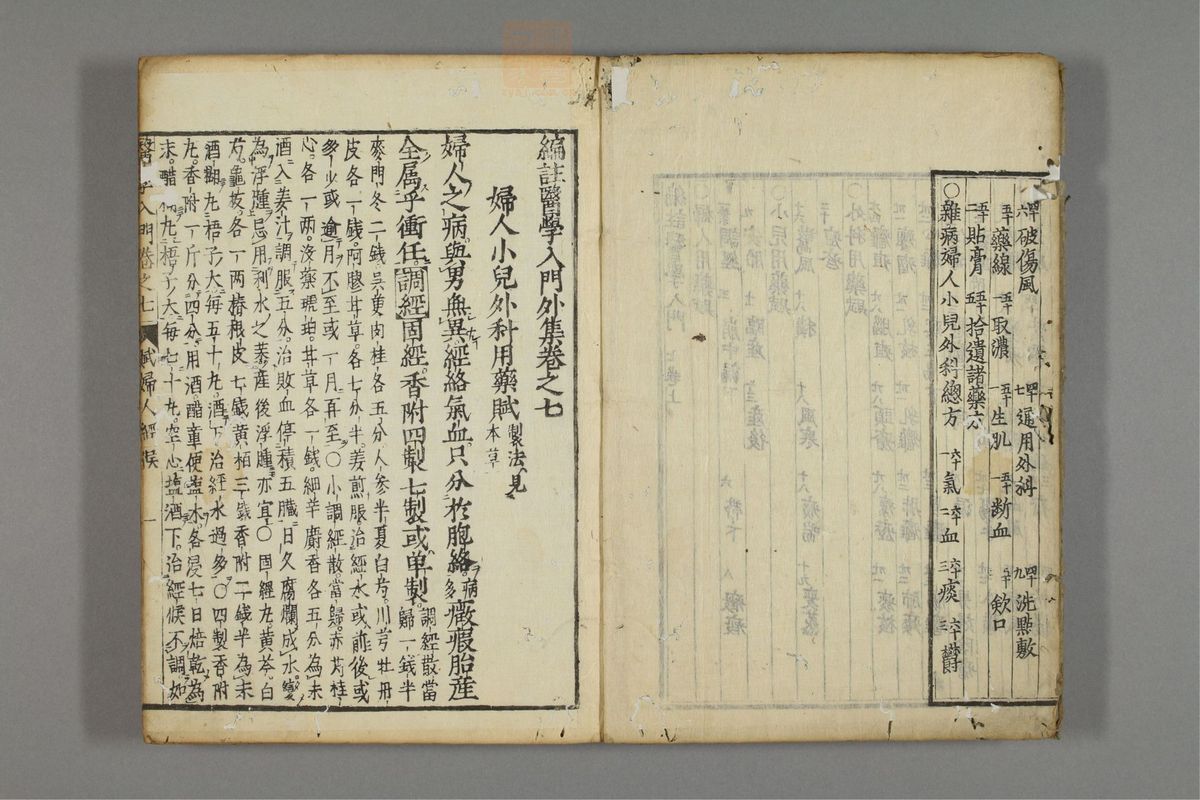 四十六破傷風 四十七通用外科 四十九洗點敷
五十藥線 五十取濃 五十一生肌 五十一断血 五十歛口
五十二貼膏 五十拾遺諸藥方
〇雜病婦人小兒外科總方 六十一氣 六十二血 六十三痰 六十三欝
編註醫學入門外集卷之七
婦人小兒外科用藥賦 製法見本草
婦人之病與男無異經絡氣血只分於胞絡病多癥瘕胎産
全属乎衝任調經固經香附四製七製或单製 調經散當歸一錢半
麥門冬二錢呉茱肉桂各五分人参半夏白芍川芎牡丹
皮各一錢阿膠甘草各七分半姜煎服治經水或前後或
多少或逾月不至或一月再至〇小調經散當歸赤芍桂
心各一兩没藥琥珀甘草各一錢細辛麝香各五分為末
酒入姜汁調服五分治敗血停積五臟日久腐爛成水變
為浮腫忌用利水之藥産後浮腫亦宜〇固經丸黄芩白
芍龜板各一兩椿根皮七錢黄柏三錢香附二錢半為末
酒糊丸梧子大毎五十丸酒下治經水過多〇四製香附
丸香附一斤分四分用酒醋童便盐水各浸七日焙乾為
末醋糊丸梧子大毎七十丸空心塩酒下治經候不調如
醫學入門卷之七 賦婦人經候 一